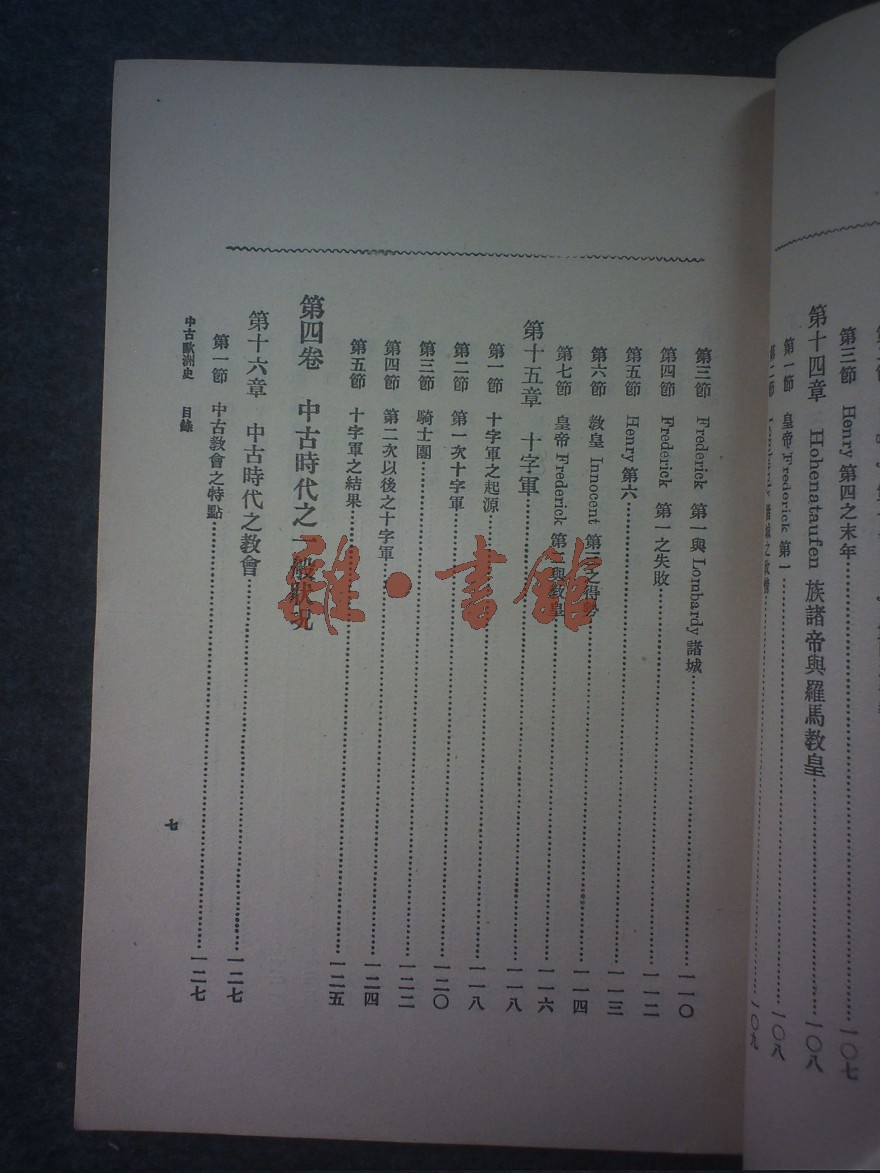 第三節 Henry 第四之末年 一〇七
第十四章 Hohenataufen 族諸帝與羅馬教皇 一〇八
第一節 皇帝 Frederick 第一 一〇八
第二節 諸城之政情 一〇九
第三節 Frederick 第一與 Lombardy 諸城 一一〇
第四節 Frederick 第一之失敗 一一二
第五節 Henry 第六 一一三
第六節 教皇 Innocent 第三之得勢 一一四
第七節 皇帝 Frederick 第二與教皇 一一六
第十五章 十字軍 一一八
第一節 十字軍之起源 一一八
第二節 第一次十字軍 一二〇
第三節 騎士團 一二二
第四節 第二次以後之十字軍 一二四
第五節 十字軍之結果 一二五
第四卷 中古時代之一般狀況
第十六章 中古時代之教會 一二七
第一節 中古教會之特點 一二七
中古歐洲史 目錄
七
雜·書館